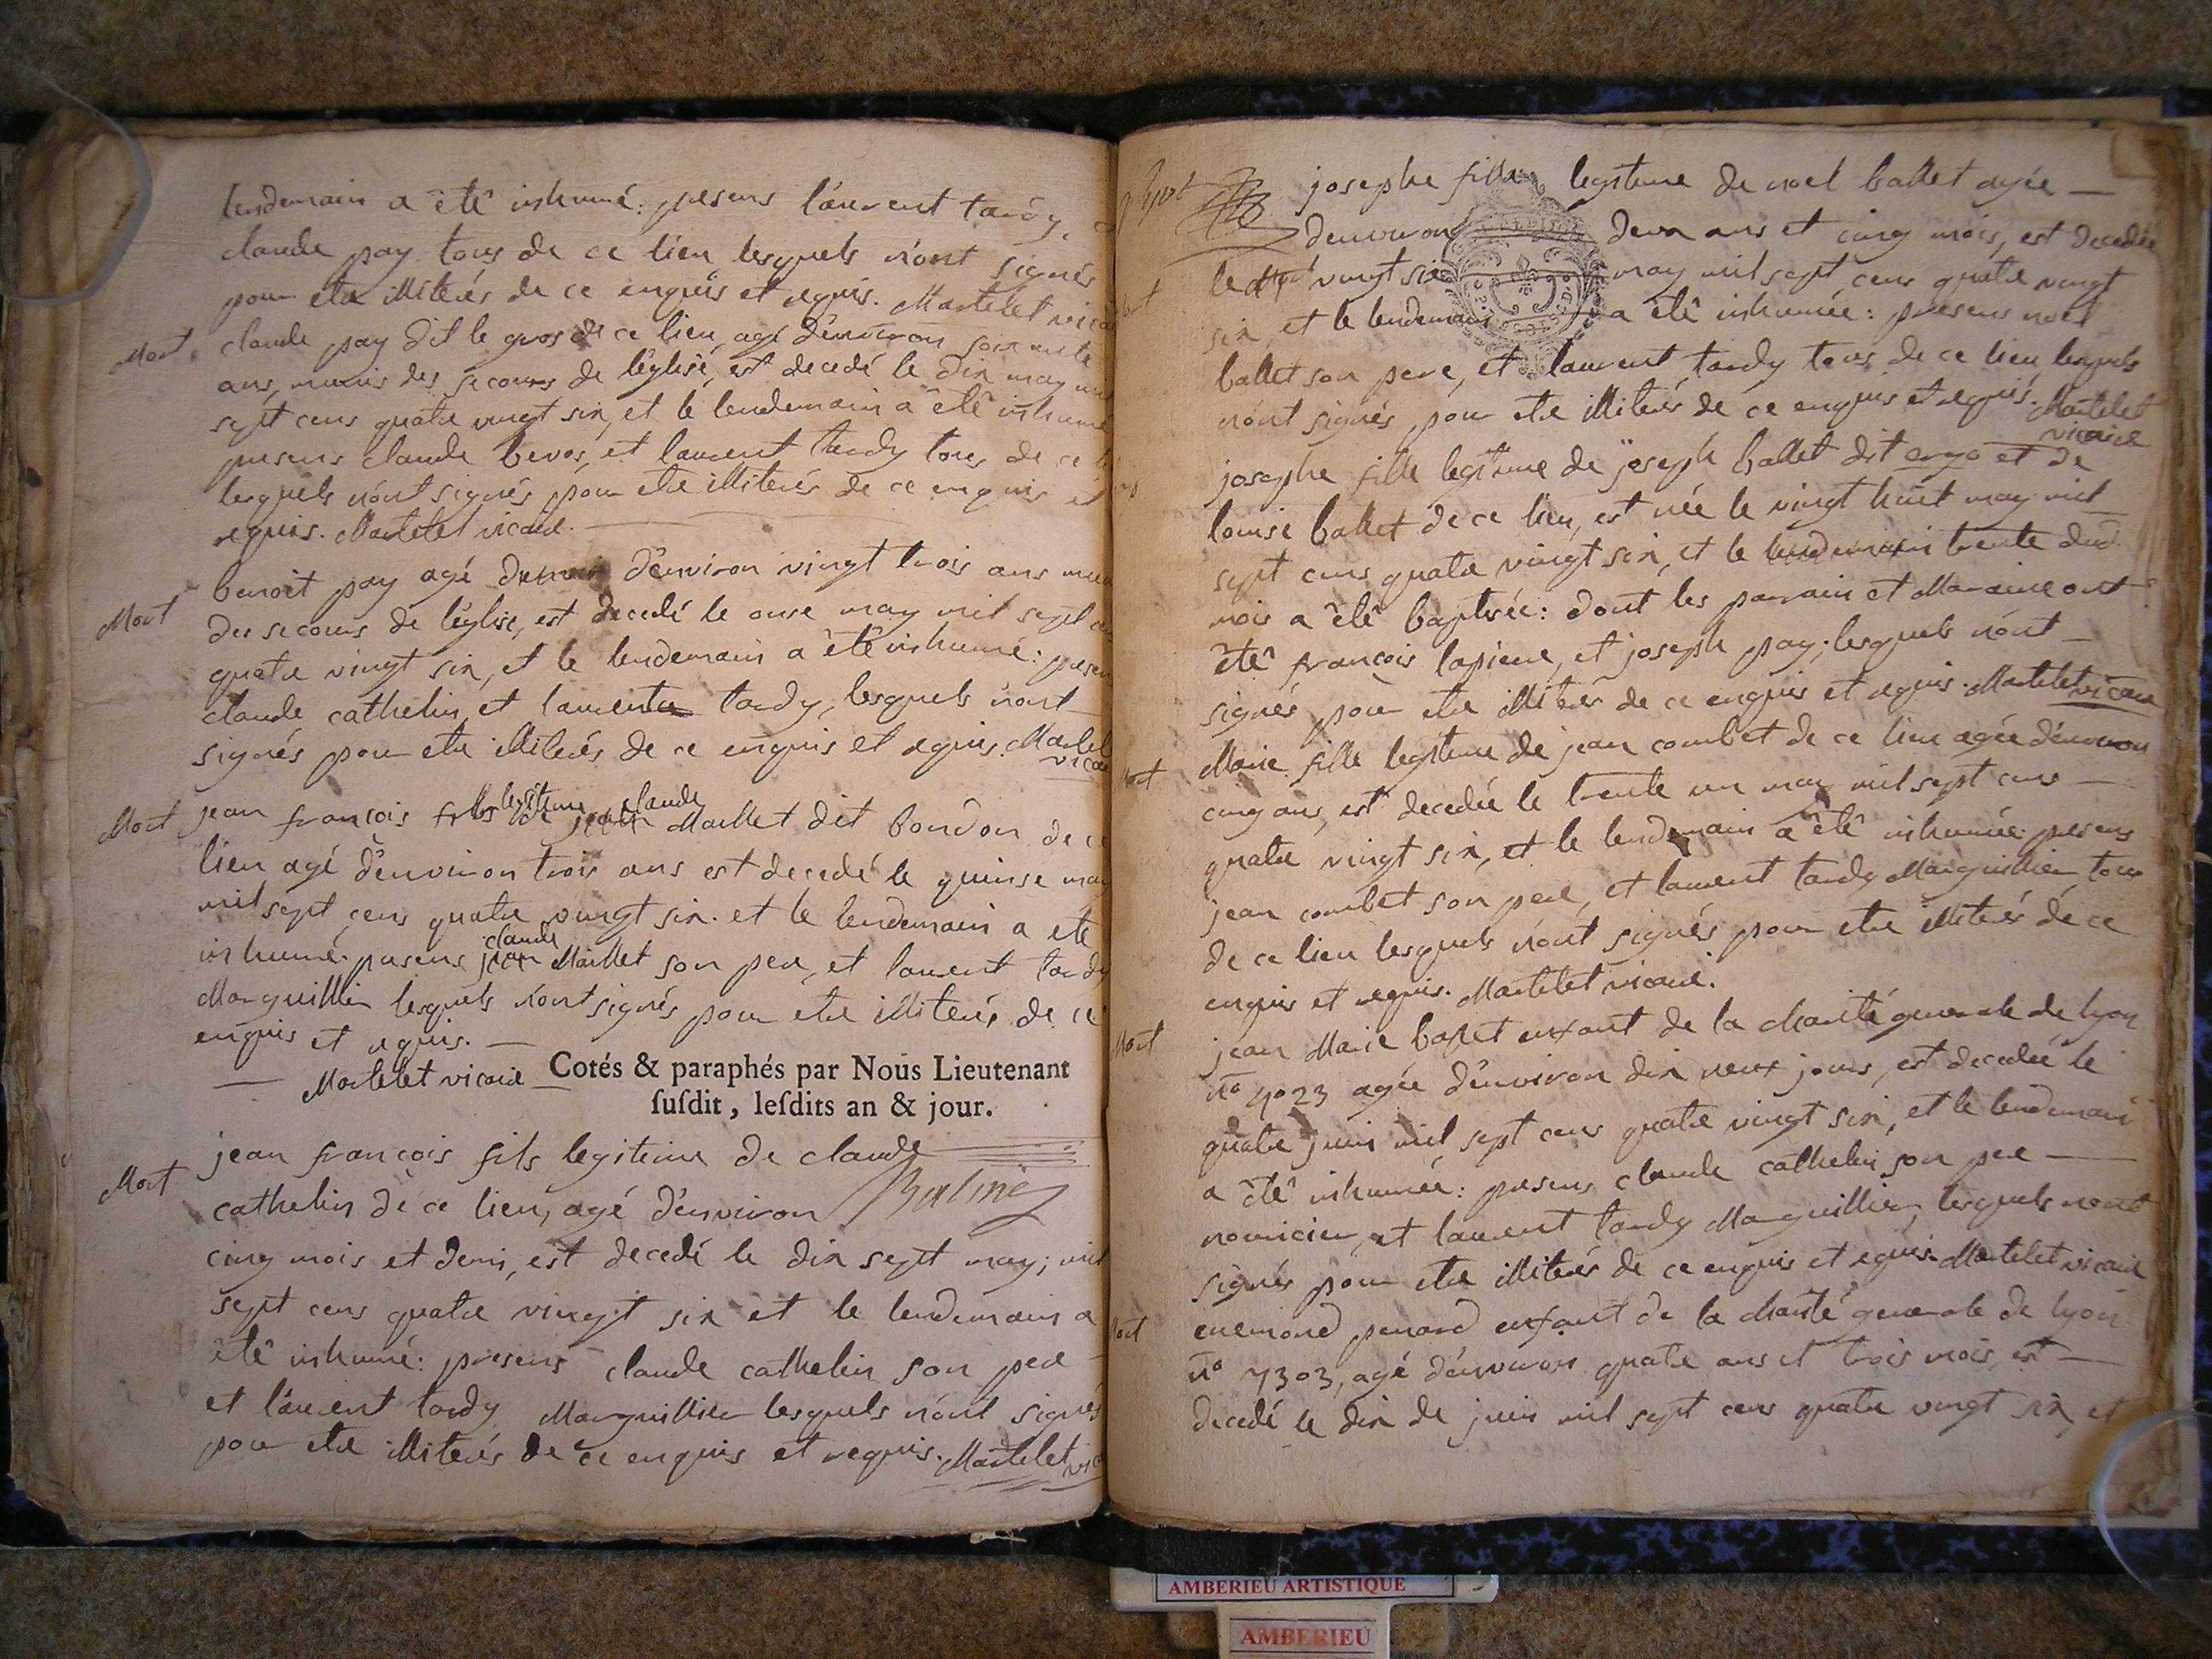 lendemain a êtê inhumé: presens laurent tardy,
claude pay tous de ce lieu lesquels n'ont signés
pour etre illiterés de ce enquis et requis. Martelet vicai
Mort claude pay dit le gros de ce lieu, agé d'environ soixante
ans, munis des secours de l'église, est decedé le dix may mil
sept cens quatre vingt six, et le lendemain a êtê inhumé
presens claude bevos, et laurent tardy tous de ce
lesquels n'ont signés pour etre illiterés de ce enquis et
requis. Martelet vicaire.
Mort benoit pay agé d'environ vingt trois ans mu
des secours de l'église, est decedé le onze may mil sept cen
quatre vingt six, et le lendemain a êtê inhumé: presen
claude cathelin, et laurent tardy, lesquels n'ont
signés pour etre illiterés de ce enquis et requis. Martelet
vicaire
legitime claude
Mort jean françois fils de jean Maillet dit bondon de ce
lieu agé d'environ trois ans est decedé le quinse may
mil sept cens quatre vingt six. et le lendemain a ete
claude
inhumé. presens jean Maillet son pere, et laurent tardy
Marguillier lesquels n'ont signés pour etre illiterés de ce
enquis et requis. —
— Martelet vicaire — Cotés & paraphés par Nous Lieutenant
ſuſdit, leſdits an & jour.
jean françois fils legitime de claude
Mort cathelin de ce lieu, agé d'environ
cinq mois et demi, est decedé le dix sept may; mil
sept cens quatre vingt six et le lendemain a
êtê inhumé: presens claude cathelin son pere
et laurent tardy Marguillier lesquels n'ont signés
pour etre illiterés de ce enquis et requis. Martelet vic
josephe fille legitime de noel ballet agée —
denviron deux ans et cinq mois, est decedée
le vingt six may mil sept cens quatre vingt
six, et le lendemain a êtê inhumée: presens noel
ballet son pere, et laurent tardy tous de ce lieu lesquels
n'ont signés pour etre illiterés de ce enquis et requis. Martelet
vicaire
josephe fille legitime de joseph ballet dit et de
louise ballet de ce lieu, est née le vingt huit may mil
sept cens quatre vingt six, et le lendemain trente dud
mois a êtê baptisée: dont les parrain et Maraine ont
êtê françois lapierre, et joseph pay; lesquels n'ont
signés pour etre illiterés de ce enquis et requis. Martelet vicaire
Mort Marie fille legitime de jean combet de ce lieu agée d'environ
cinq ans, est decedée le trente un may mil sept cens —
quatre vingt six, et le lendemain a êtê inhumée: presens
jean combet son pere, et laurent tardy Marguillier, tous
de ce lieu lesquels n'ont signés pour etre illiterés de ce
enquis et requis. Martelet vicaire.
Mort jean Marie enfant de la charité generale de lyon
n° 4023 agée d'environ dix neuf jours, est decedée le
quatre juin mil sept cens quatre vingt six, et le lendemain
a êtê inhumée: presens claude cathelin son pere —
nouricier, et laurent tardy Marguillier, lesquels n'ont
signés pour etre illiterés de ce enquis et requis. Martelet vicaire
Mort enemond penard enfant de la charité generale de lyon
n° 7303, agé d'environ quatre ans et trois mois, est —
decedé le dix de juin mil sept cens quatre vingt six, et
AMBERIEU ARTISTIQUE
AMBERIEU